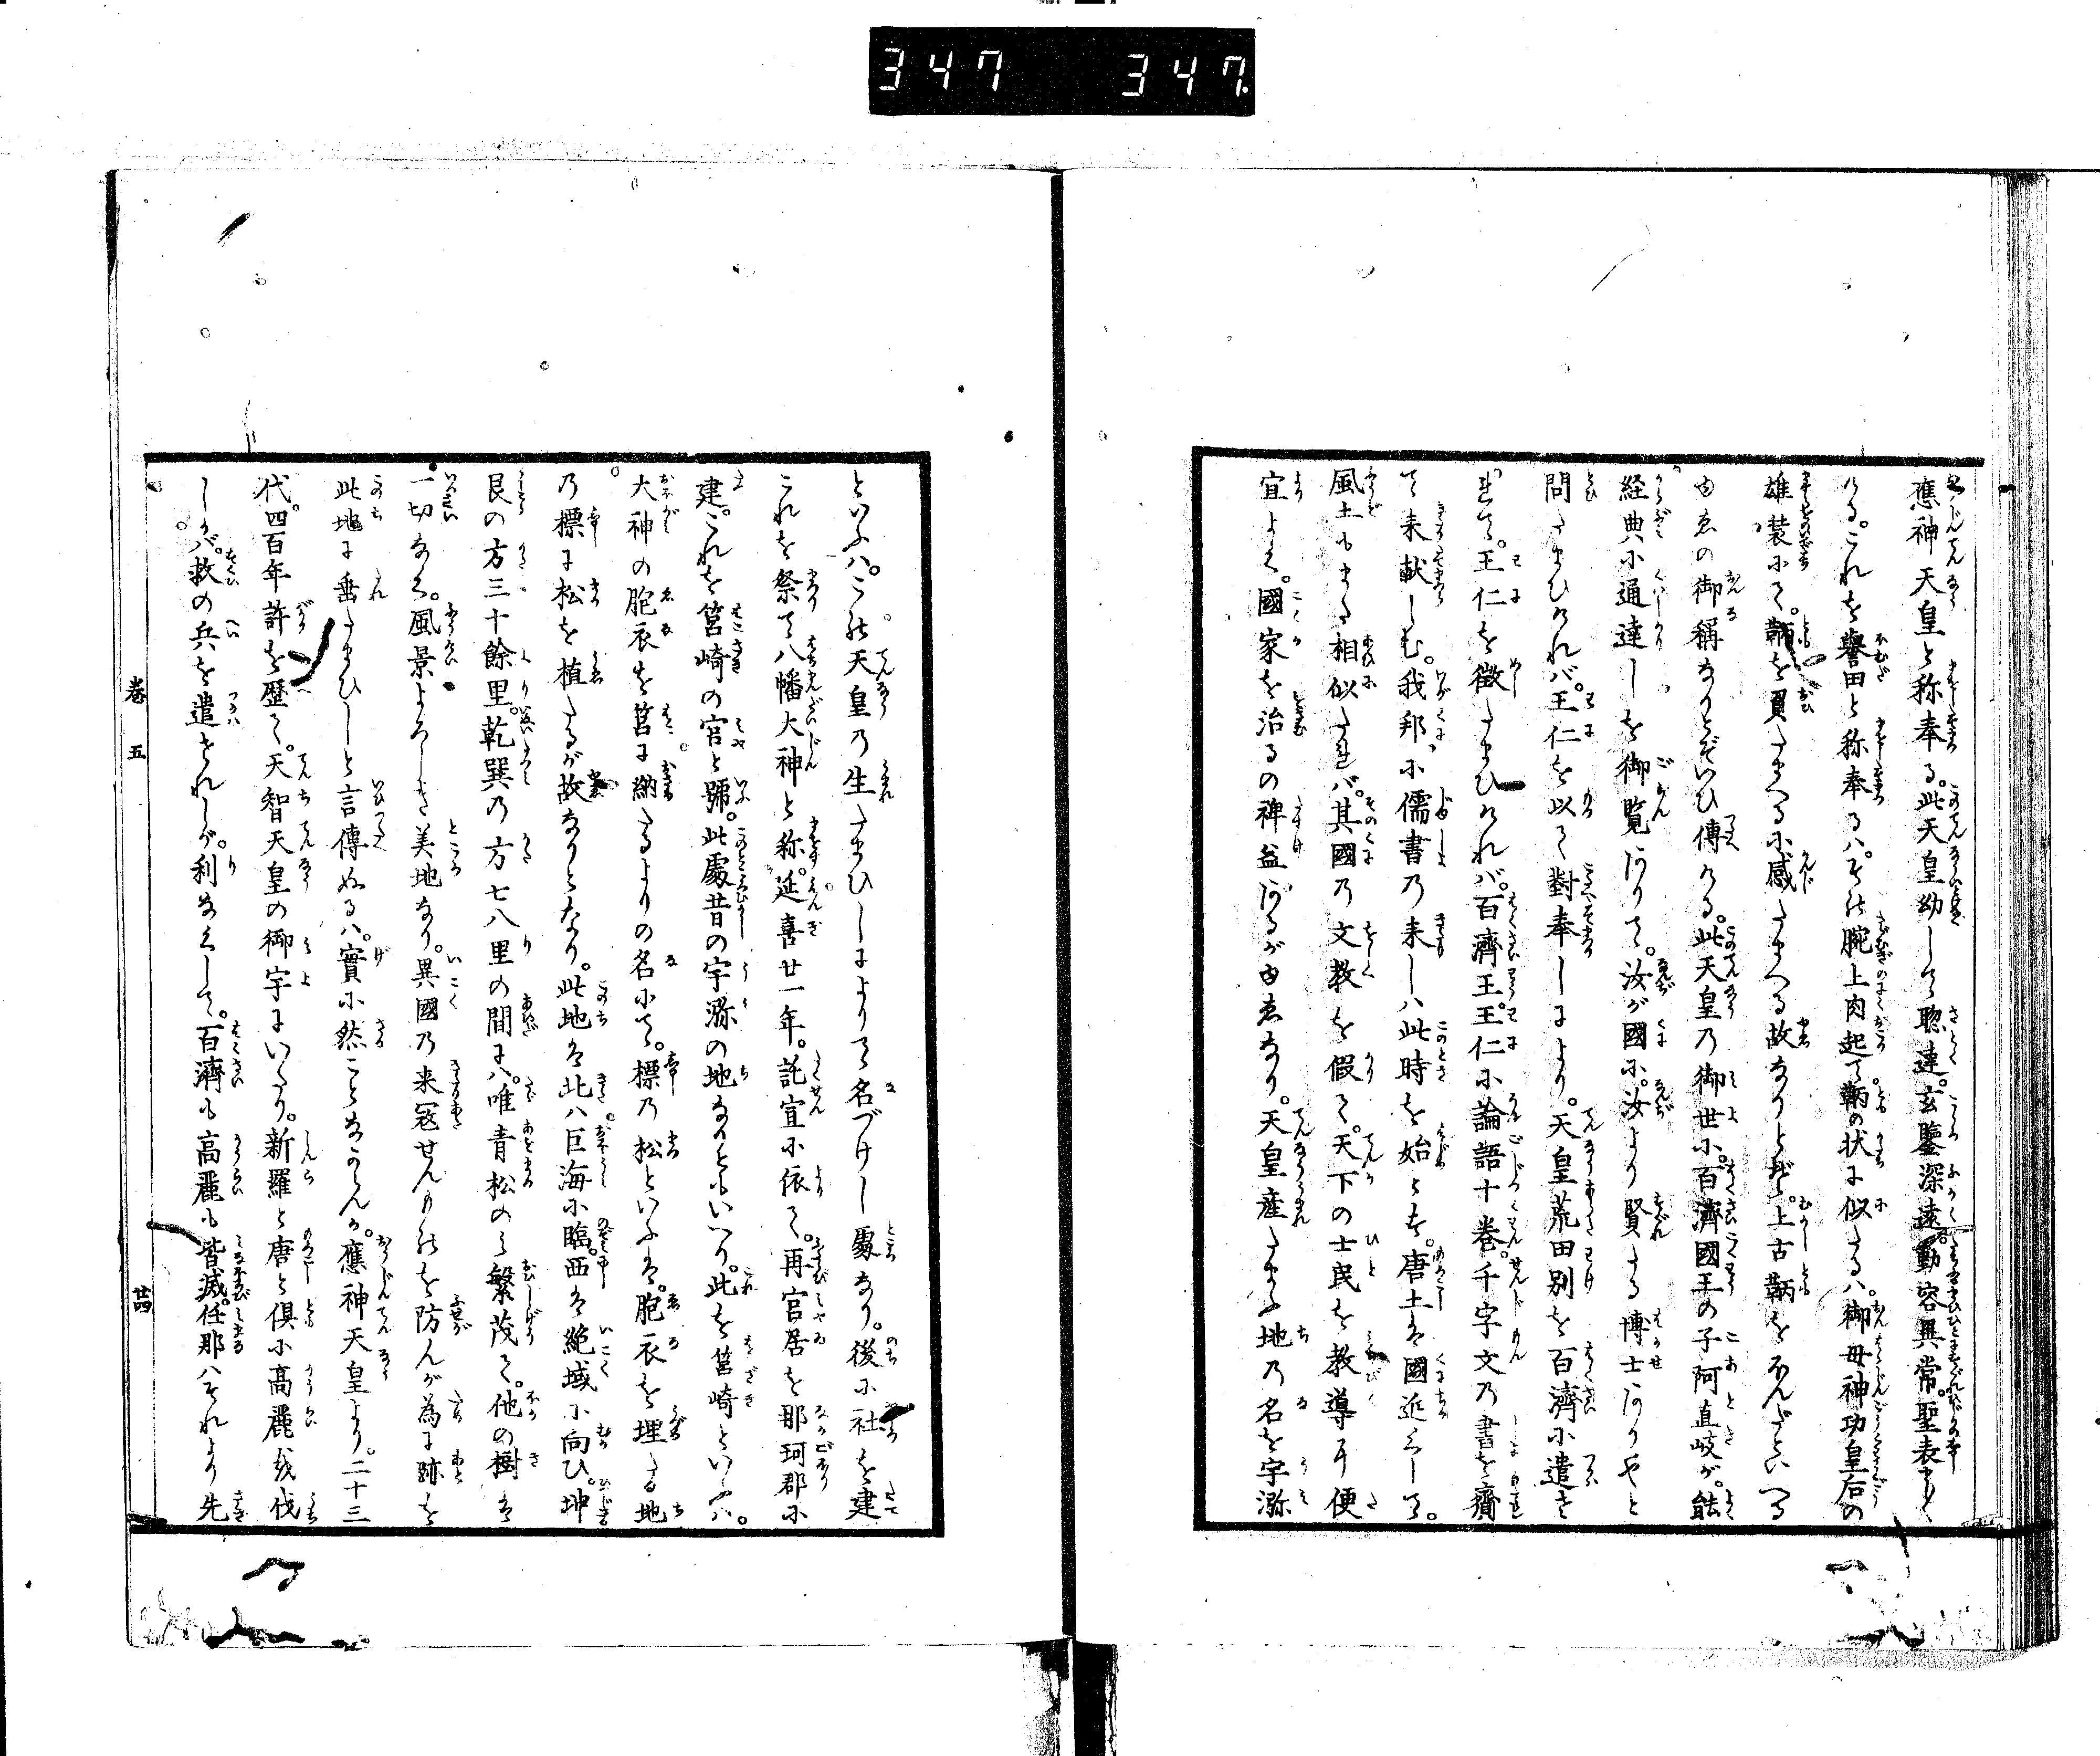 347 347
應神天皇と称奉る。此天皇幼して聡達。玄鑒深遠。動容異常。聖表ましく
ける。これを譽田と称奉るハ。その腕上肉起て鞆の状に似たるハ。御母神功皇后の
雄装にて。鞆を負たまへるに感たまへる故なりとぞ。上古鞆をほんだといへる
ゆゑの御稱なりとぞいひ傳ける。此天皇乃御世に。百濟國王の子阿直岐が。能
経典に通達しを御覧ありて。汝が國に。汝より賢たる博士ありやと
問たまひけれバ。王仁を以て對奉しにより。天皇荒田別を百濟に遣さ
れて。王仁を徴たまひけれバ。百濟王。王仁に論語十巻。千字文乃書を齎
て来献しむ。我邦に儒書乃来しハ此時を始とす。唐土は國近くして。
風土もまた相似たれバ。其國乃文教を假て。天下の士民を教導に便
宜よく。國家を治るの裨益あるがゆゑなり。天皇産たまふ地乃名を宇瀰
といふハ。この天皇乃生たまひしによりて名づけし處なり。後に社を建
これを祭て八幡大神と称。延喜廿一年。託宣に依て。再宮居を那珂郡に
建。これを筥崎の宮と號。此處昔の宇瀰の地なりともいへり。此を筥崎といふハ。
大神の胞衣を筥に納たるよりの名にて。標乃松といふは。胞衣を埋たる地
乃標に松を植たるが故なりとなり。此地は北ハ巨海に臨。西は絶域に向ひ。坤
艮の方三十餘里。乾巽乃方七八里の間にハ。唯青松のミ繁茂て。他の樹は
一切なく。風景よろしき美地なり。異國乃来冦せんものを防んが為に跡を
此地に垂たまひしと言傳ぬるハ。實に然ことなるらんか。應神天皇より。二十三
代。四百年許を歴て。天智天皇の御宇にいたり。新羅と唐と倶に高麗を伐
しかバ。救の兵を遣されしが。利なくして。百濟も高麗も皆滅。任那ハそれより先
巻五
廿四